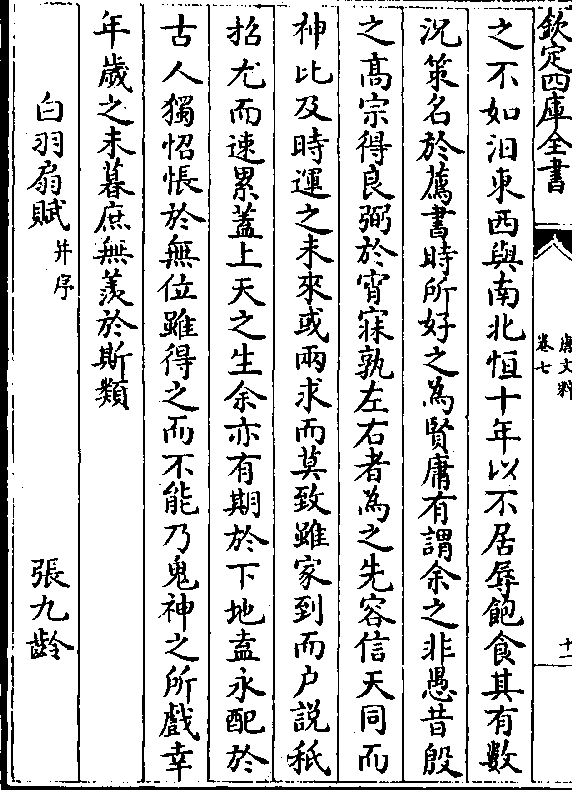 欽定四庫全書
唐文粹
卷七
十二
之不如汨東西與南北恒十年以不居辱飽食其有數
况策名於薦書時所好之為賢庸有謂余之非愚昔殷
之髙宗得良弼於宵寐孰左右者為之先容信天同而
神比及時運之未來或兩求而莫致雖家到而户説秖
招尤而速累蓋上天之生余亦有期於下地盍永配於
古人獨怊悵於無位雖得之而不能乃鬼神之所戲幸
年歲之未暮庶無羨於斯類
白羽扇賦并序 張九齡